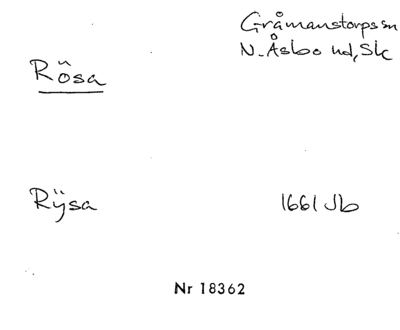 Gråmanstorps sn
N. Åsbo hd, Sk
Rösa
Rÿsa 1661 Jb
Nr 18362